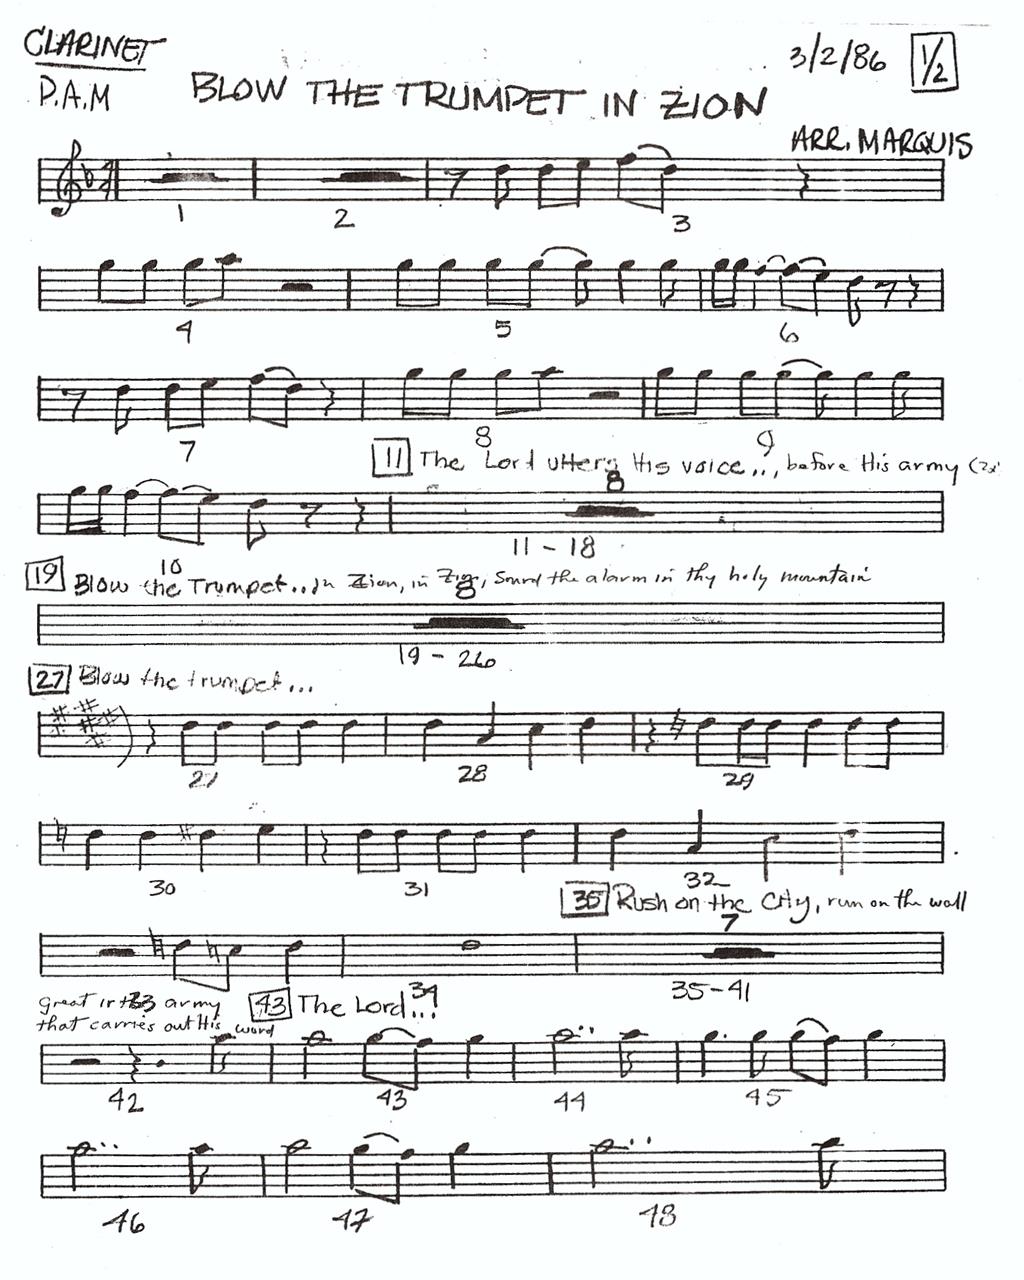 CLARINET
3/2/86 1/2
P.A.M BLOW THE TRUMPET IN ZION
ARR. MARQUIS
1 2 3
4 5 6
7 8 9
11 The Lord utters His voice..., before His army (2x
8
10 11-18
19 Blow the Trumpet... in Zion, in Zion, Sound the alarm in thy holy mountain
8
19-26
27 Blow the trumpet...
27 28 29
30 31 32
35 Rush on the City, run on the wall
7
33 34 35-41
Great is the army
that carries out His word
43 The Lord...
42 43 44 45
46 47 48